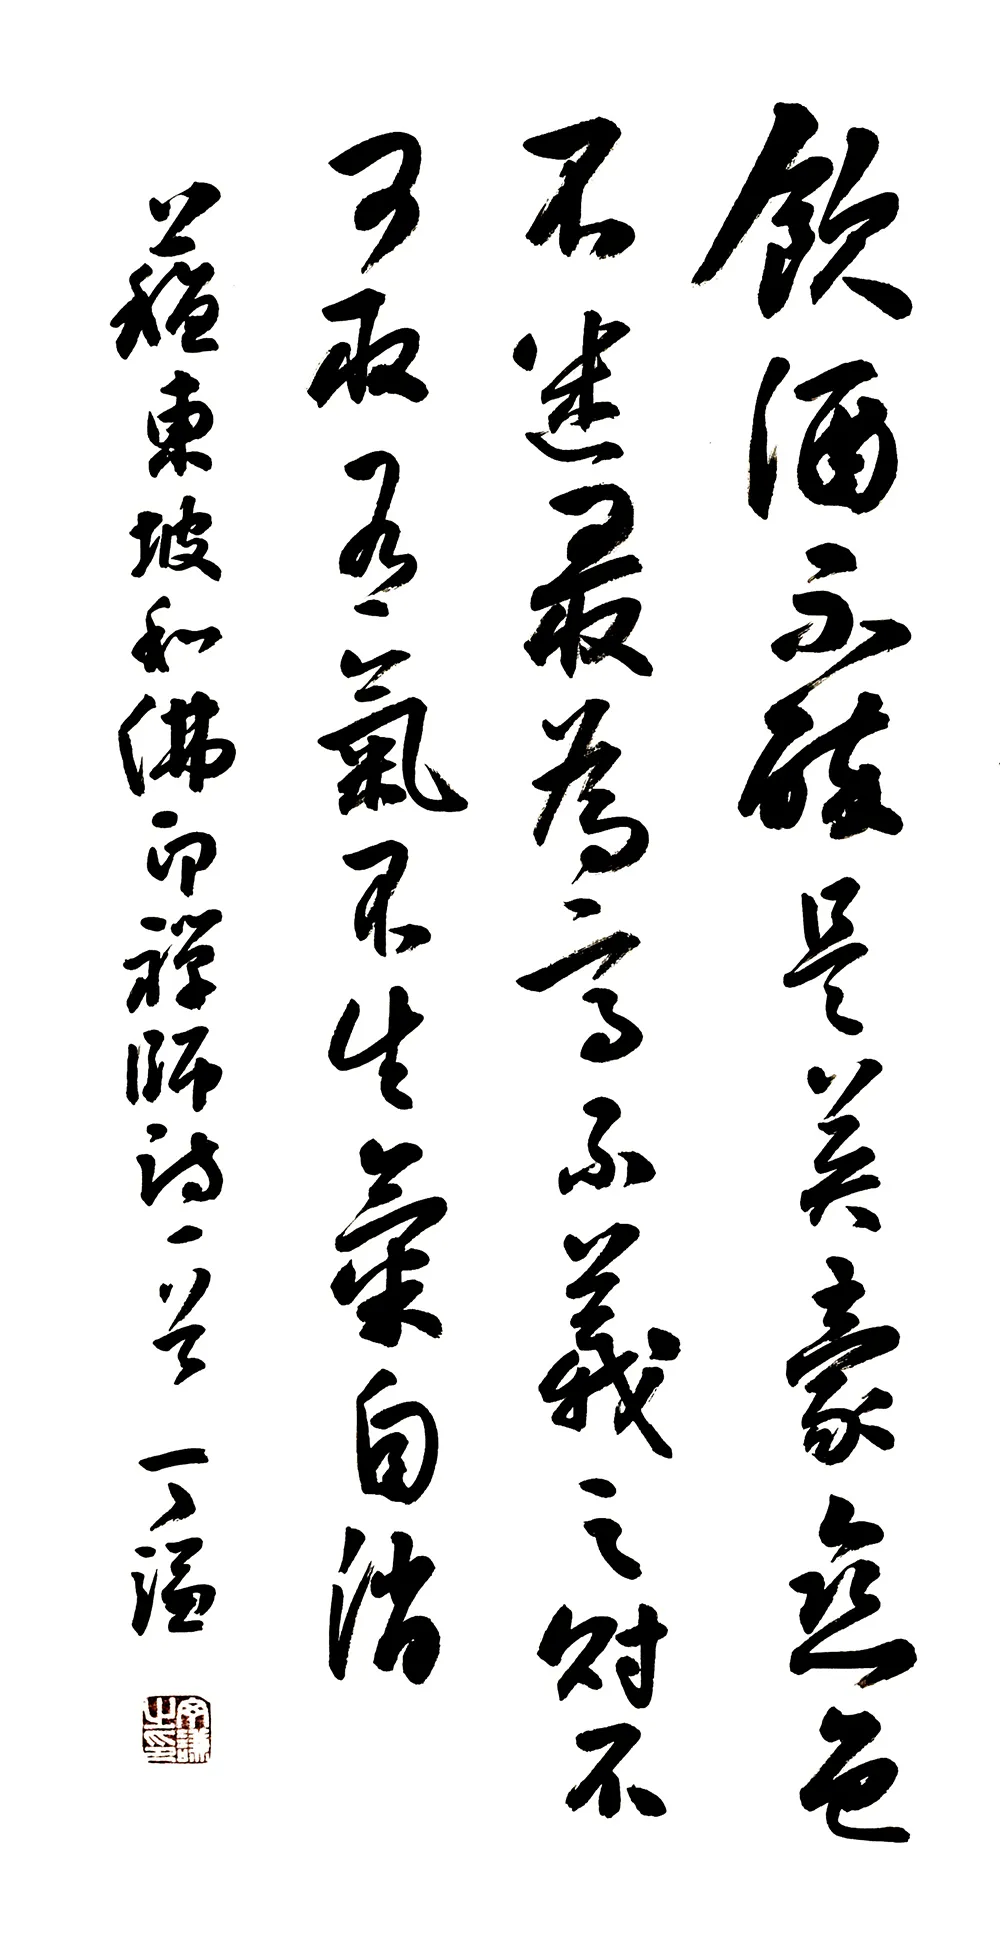 飲酒不醉是英豪恋色
不迷最為高不義之財不
可取有氣不生氣自消
蘇東坡和佛印禪師詩一首 丁